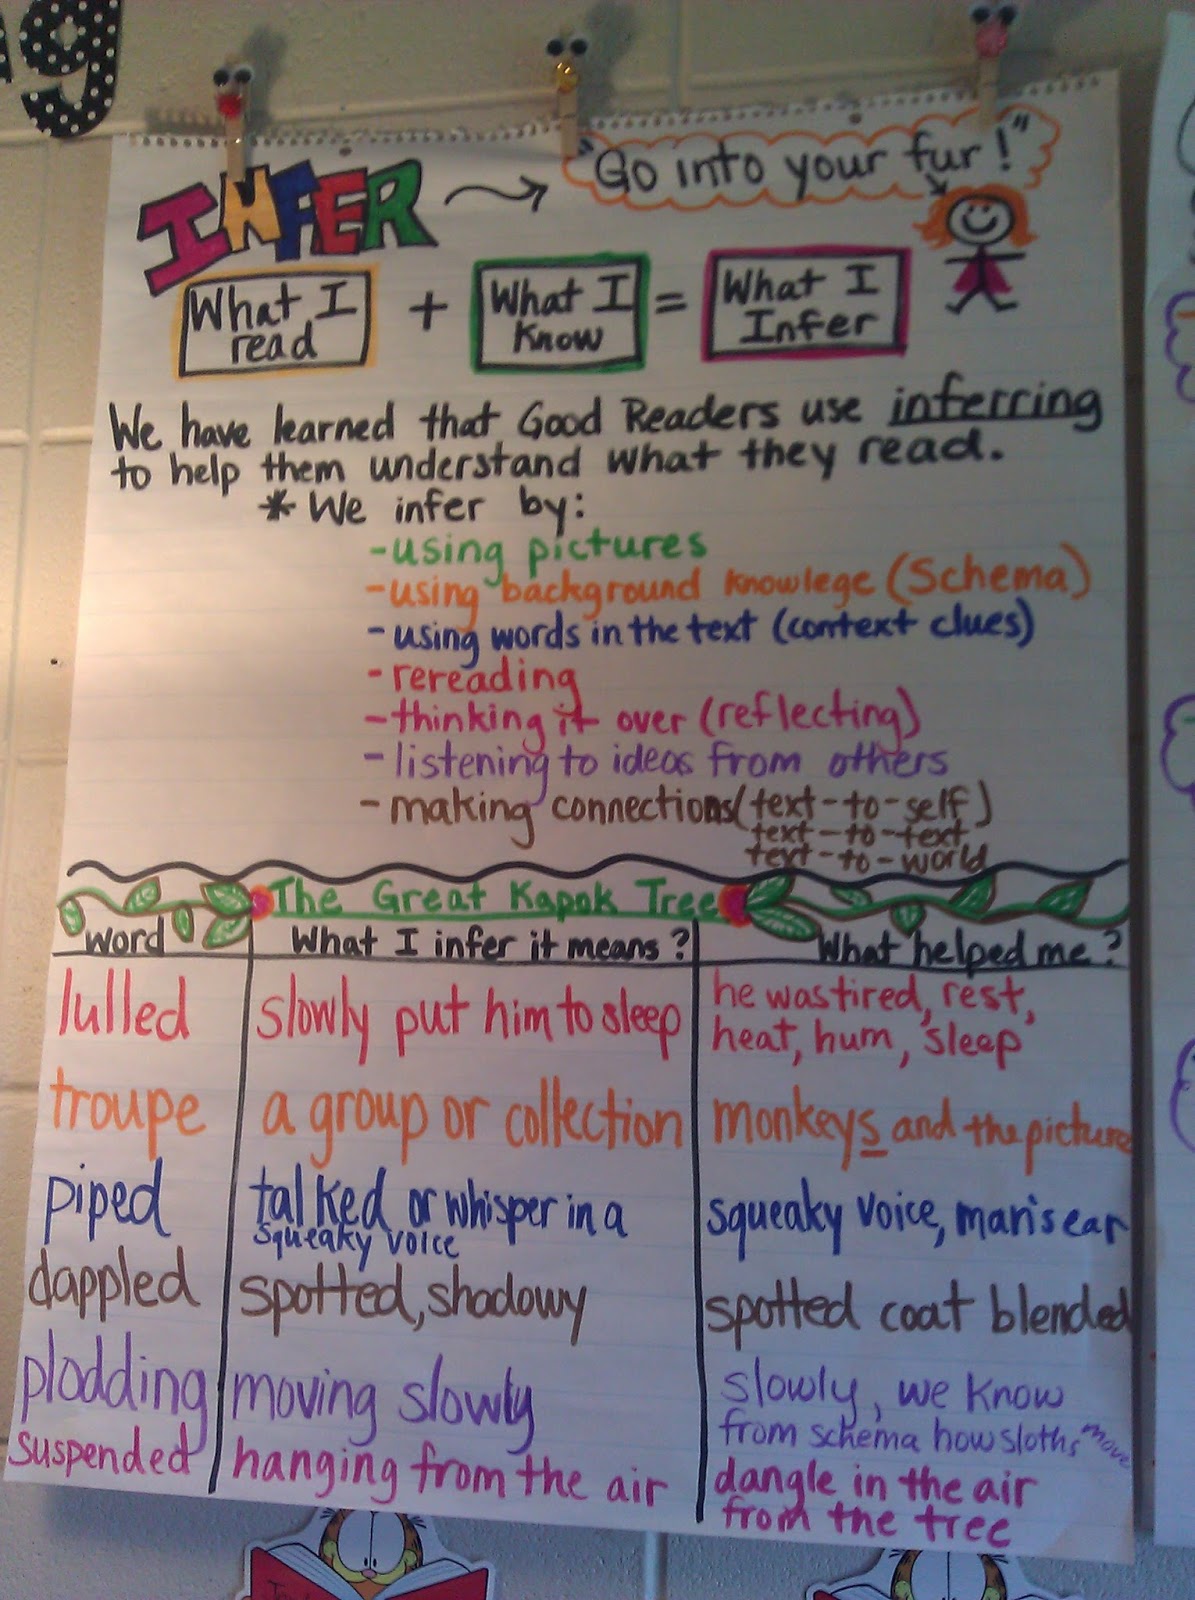 INFER
"Go into your fur!"
What I
read
+
What I
Know
=
What I
Infer
We have learned that Good Readers use inferring
to help them understand what they read.
* We infer by:
- using pictures
- using background knowlege (Schema)
- using words in the text (context clues)
- rereading
- thinking it over (reflecting)
- listening to ideas from others
- making connections (text-to-self)
text-to-text
text-to-world
The Great Kapok Tree
word What I infer it means? What helped me?
lulled slowly put him to sleep he was tired, rest,
heat, hum, sleep
troupe a group or collection monkeys and the picture
piped talked or whisper in a squeaky voice, man's ear
squeaky voice
dappled spotted, shadowy spotted coat blended
plodding moving slowly slowly, we know
from schema how sloths move
suspended hanging from the air dangle in the air
from the tree